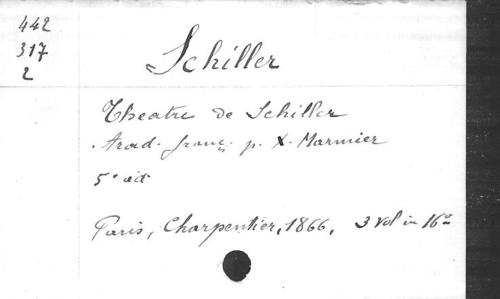 442
317
2
Schiller
Theatre de Schiller
Trad. franç. p. X. Marmier
5e ed
Paris, Charpentier, 1866, 3 vol in 16o